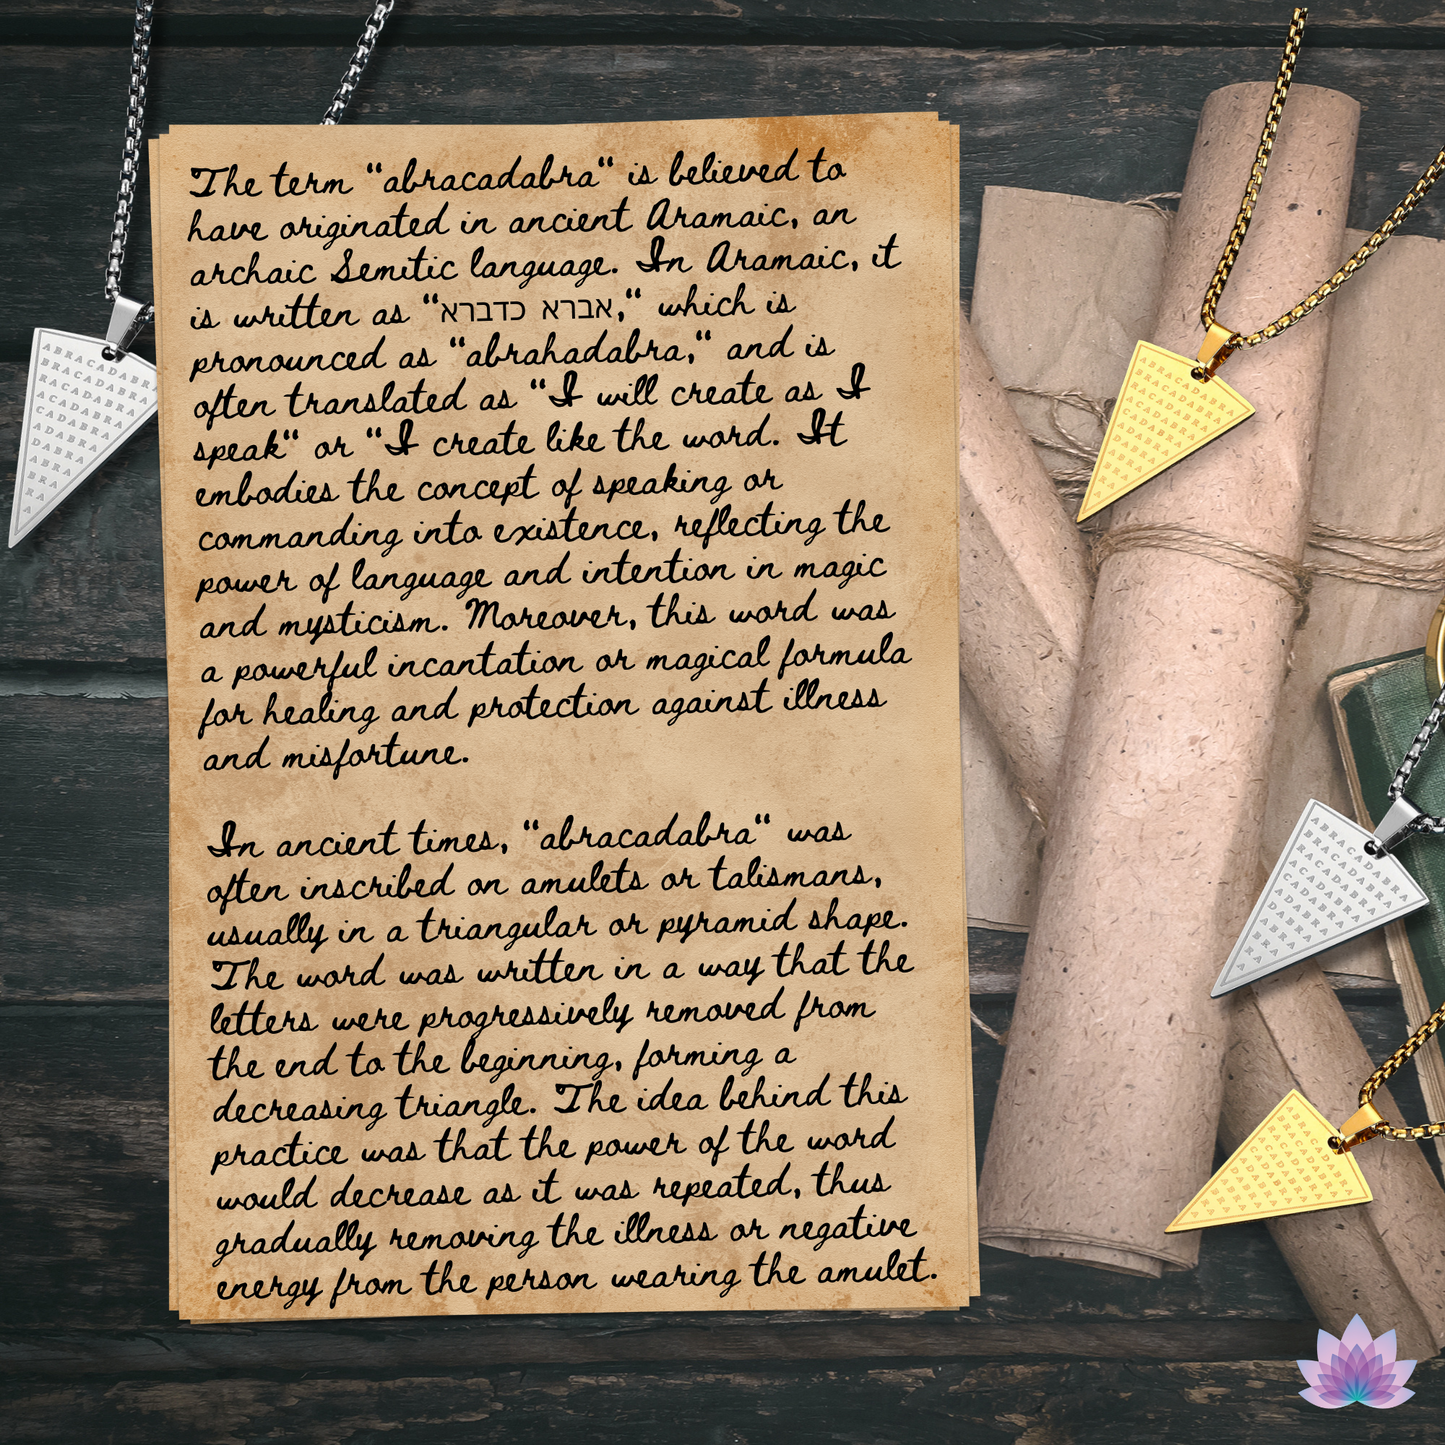 The term "abracadabra" is believed to
have originated in ancient Aramaic, an
archaic Semitic language. In Aramaic, it
is written as "אברא כדברא," which is
pronounced as "abrahadabra," and is
often translated as "I will create as I
speak" or "I create like the word. It
embodies the concept of speaking or
commanding into existence, reflecting the
power of language and intention in magic
and mysticism. Moreover, this word was
a powerful incantation or magical formula
for healing and protection against illness
and misfortune.
In ancient times, "abracadabra" was
often inscribed on amulets or talismans,
usually in a triangular or pyramid shape.
The word was written in a way that the
letters were progressively removed from
the end to the beginning, forming a
decreasing triangle. The idea behind this
practice was that the power of the word
would decrease as it was repeated, thus
gradually removing the illness or negative
energy from the person wearing the amulet.
ABRACADABRA
BRACADABRA
RACADABRA
ACADABRA
CADABRA
ADABRA
DABRA
ABRA
BRA
RA
A